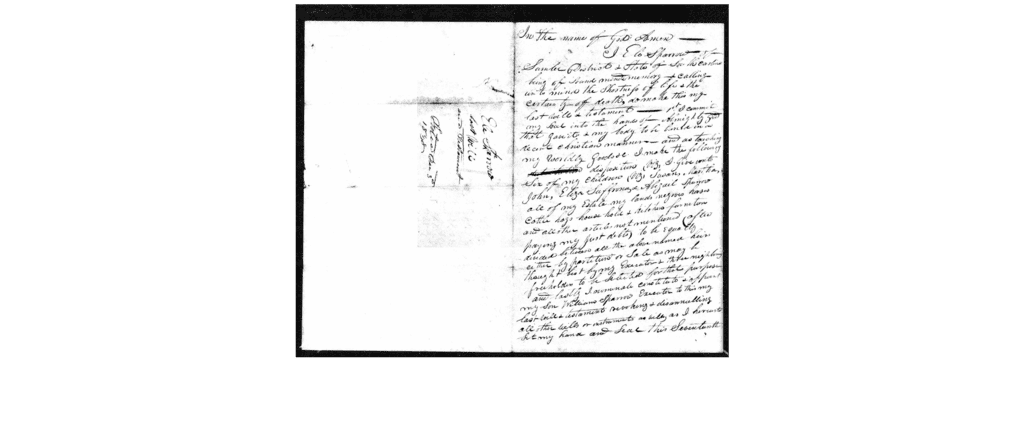 Eli Sparrow
last Will
and Testament
In the name of God Amen
I Eli Sparrow of
Sumter District & State of South Carolina
being of sound mind memory & calling
unto mind the shortness of life & the
certainty of death, do make this my
last will & testament — 1st I commit
my soul into the hands of Almighty God
that gave it & my body to be buried in a
decent christian manner — and as touching
my Worldly Goods I make the following
disposition (viz) I give unto
Six of my children (viz) Susan, Martha,
John, Eliza Saffrona & Abigail Sparrow
all of my Estate my lands negroes horses
Cattle hogs household & kitchen furniture
and all other articles not mentioned (after
paying my just debts) to be equally
divided between all the above named heirs
either by partition or Sale as may be
thought best by my Executor & three neighboring
freeholders to be selected for that purpose
and lastly I nominate constitute & appoint
my Son Williams Sparrow Executor to this my
last will & testament revoking & disannulling
all other wills or instruments as I hereunto
Set my hand and Seal this Seventeenth